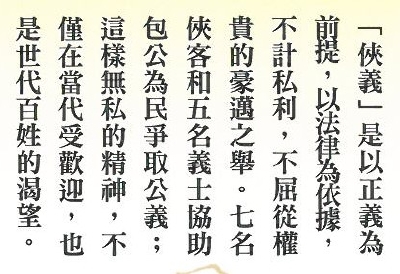 「俠義」是以正義為
前提，以法律為依據，
不計私利，不屈從權
貴的豪邁之舉。七名
俠客和五名義士協助
包公為民爭取公義；
這樣無私的精神，不
僅在當代受歡迎，也
是世代百姓的渴望。